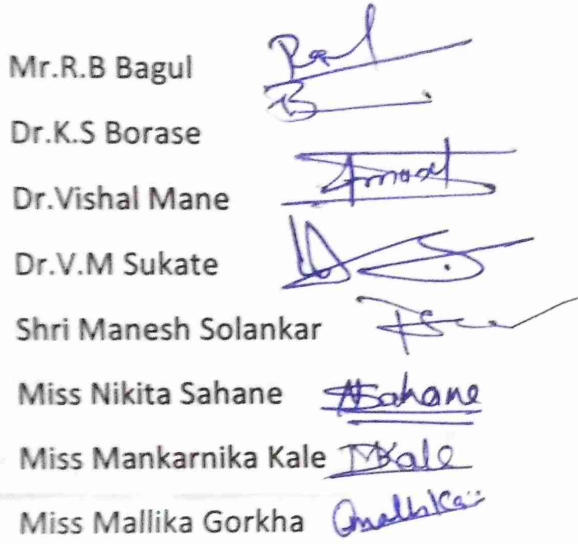 Mr.R.B Bagul
Dr.K.S Borase
Dr.Vishal Mane
Dr.V.M Sukate
Shri Manesh Solankar
Miss Nikita Sahane NSahane
Miss Mankarnika Kale MKale
Miss Mallika Gorkha